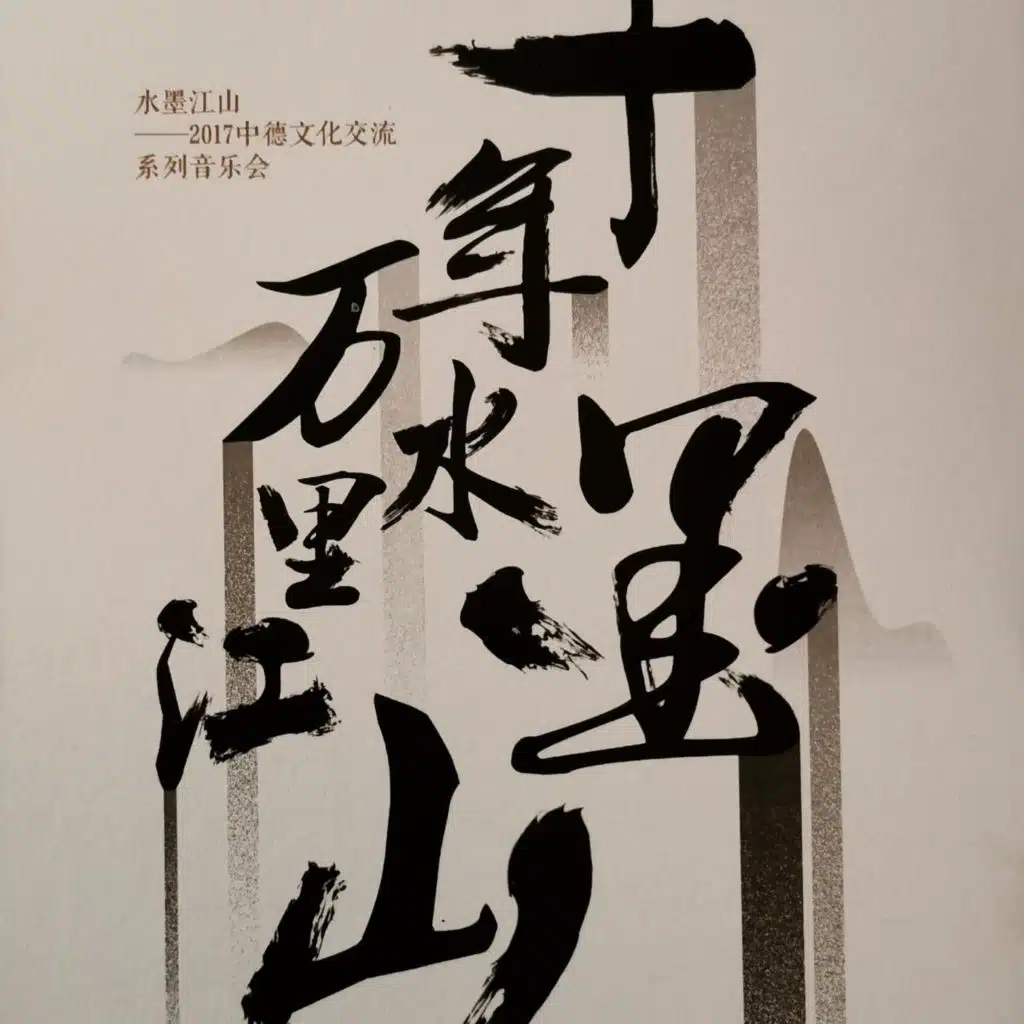 水墨江山
——2017中德文化交流
系列音乐会
十年水墨
万里江山